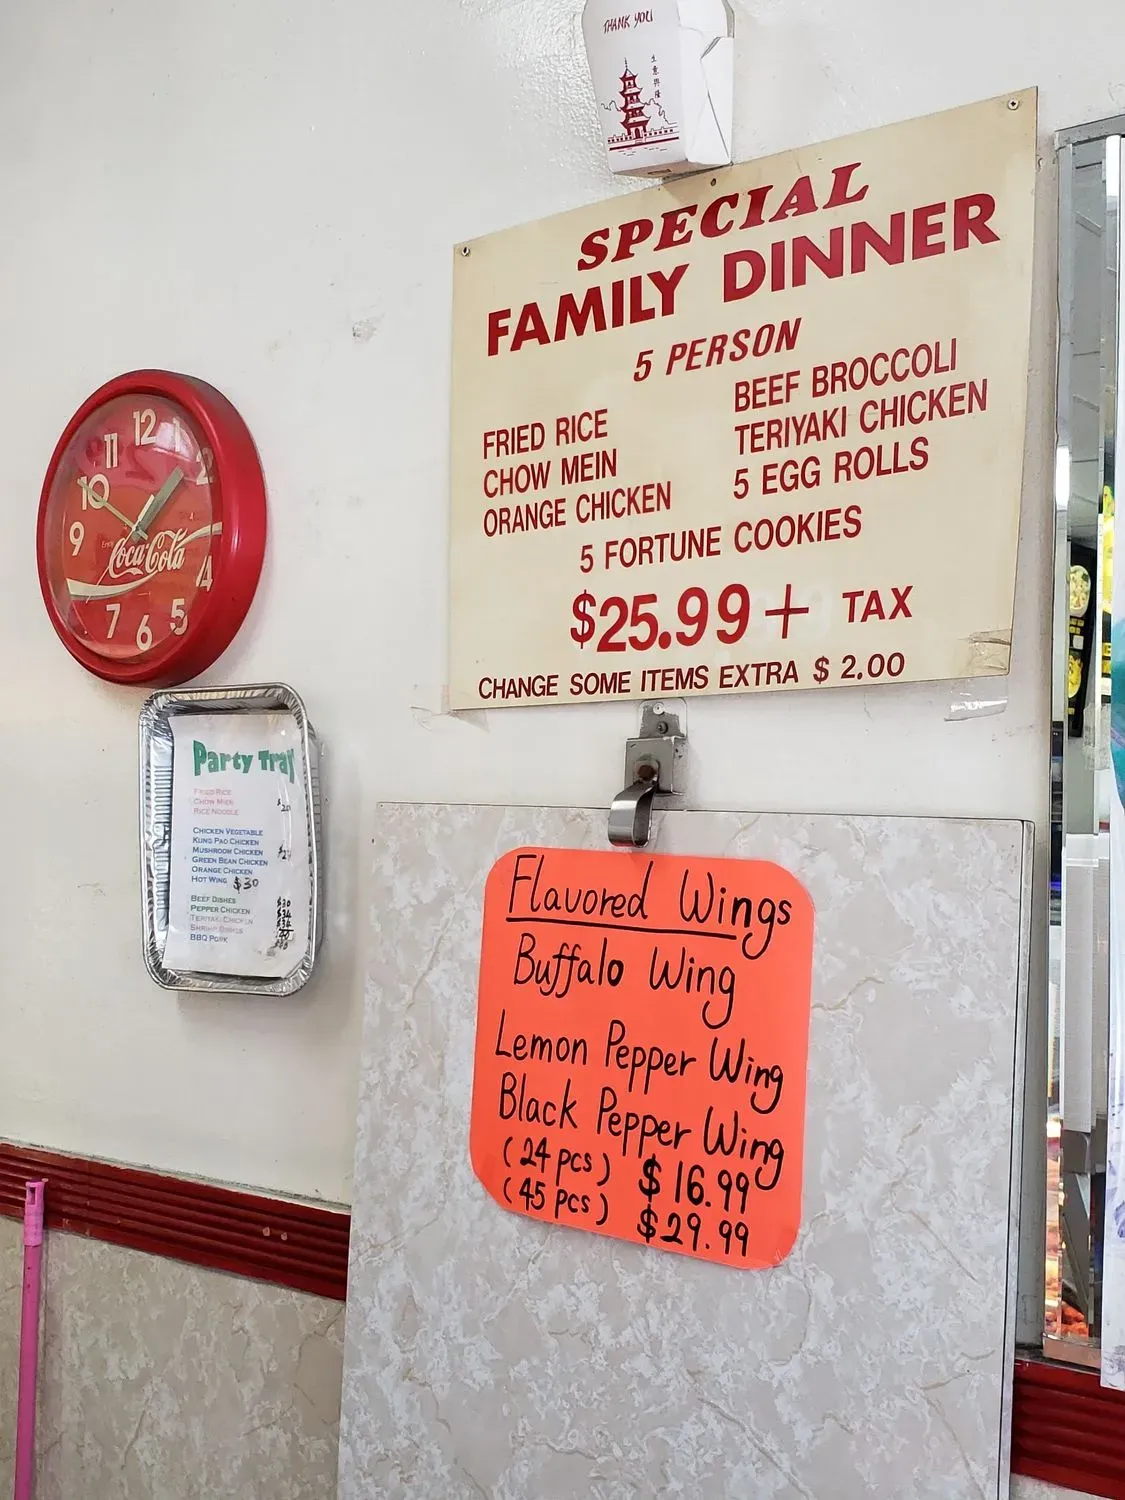 THANK YOU
生意興隆
SPECIAL
FAMILY DINNER
5 PERSON
FRIED RICE
CHOW MEIN
ORANGE CHICKEN
BEEF BROCCOLI
TERIYAKI CHICKEN
5 EGG ROLLS
5 FORTUNE COOKIES
$25.99+ TAX
CHANGE SOME ITEMS EXTRA $ 2.00
12
1
2
4
5
6
7
9
10
11
Enjoy
Coca-Cola
Party Tray
FRIED RICE
CHOW MEIN
RICE NOODLE
CHICKEN VEGETABLE
KUNG PAO CHICKEN
MUSHROOM CHICKEN
GREEN BEAN CHICKEN
ORANGE CHICKEN
HOT WING $30
BEEF DISHES $30
PEPPER CHICKEN
TERIYAKI CHICKEN
SHRIMP DISHES
BBQ PORK
Flavored Wings
Buffalo Wing
Lemon Pepper Wing
Black Pepper Wing
(24 pcs) $16.99
(45 pcs) $29.99